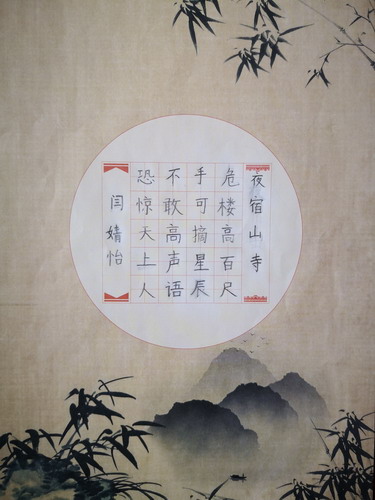 夜宿山寺
危楼高百尺
手可摘星辰
不敢高声语
恐惊天上人
闫婧怡